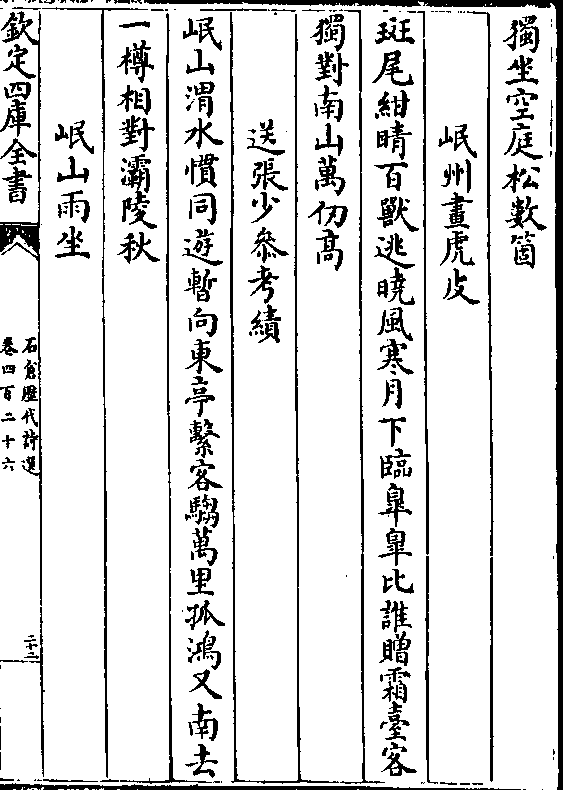 獨坐空庭松數箇
岷州畫虎皮
斑尾紺睛百獸逃曉風寒月下臨臯臯比誰贈霜臺客
獨對南山萬仞高
送張少叅考績
岷山渭水慣同遊暫向東亭繫客騶萬里孤鴻又南去
一樽相對灞陵秋
岷山雨坐
欽定四庫全書
石倉歷代詩選
卷四百二十六
二十二